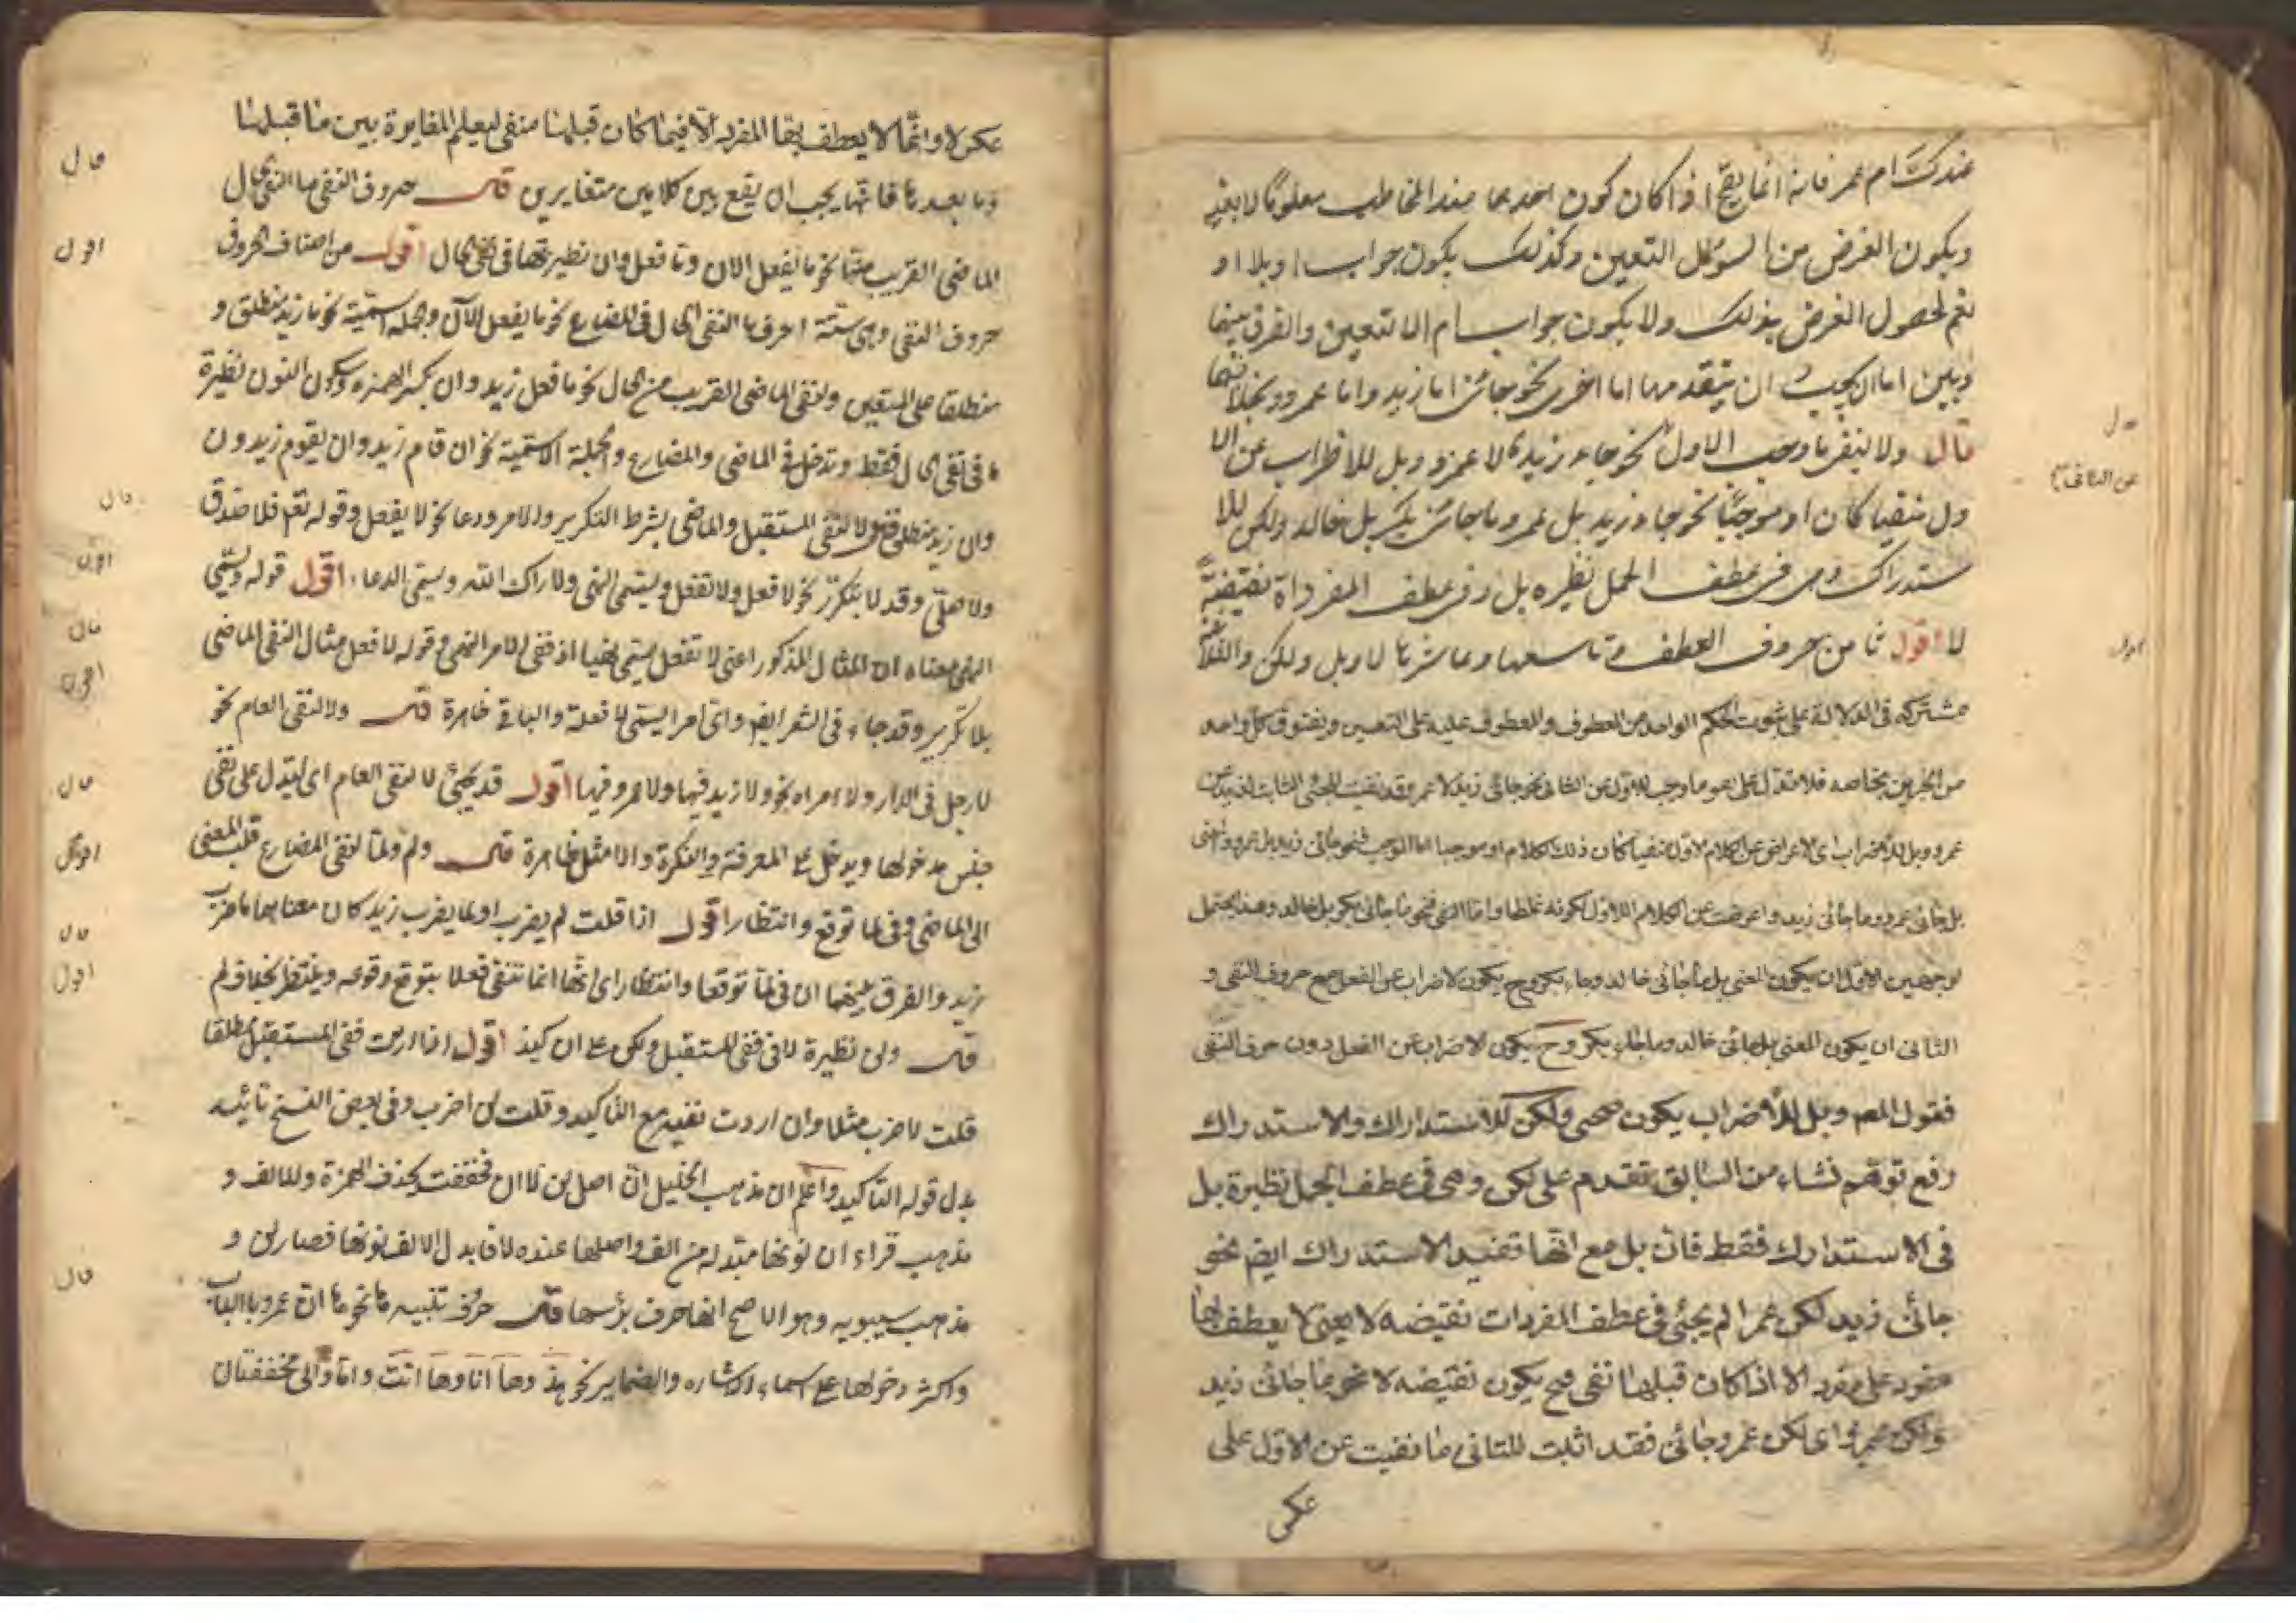 عندك ام عمر فانه انما يقع اذا كان كون احدهما عند المخاطب معلومًا لا بعينه
ويكون الغرض من السؤال التعيين وكذلك يكون جواب او بلا او
نعم لحصول الغرض بذلك ولا يكون جواب ام الا التعيين والفرق بينها
وبين اما ان يجب ان يتقدم مها اما اخرى نحو جائنى اما زيد واما عمرو وبخلافها
قال ولا لنفى ما وجب الاول نحو جاء زيد لا عمرو وبل للاضراب عن الا
ول منفيا كان او موجبًا نحو جاء زيد بل عمرو وما جائنى بكر بل خالد ولكن للا
ستدراك وهى فى عطف الجمل نظيره بل وفى عطف المفرداة نقيضة
لا اقول ثامن حروف العطف وتاسعها وعاشرها لا وبل ولكن والثلاثة
مشتركه فى الدلالة على ثبوت الحكم الواحد من المعطوف والمعطوف عليه على التعيين ويفترق كل واحد
من الاخرين بخاصه فلا تدل على نفى ما وجب للاول عن الثانى نحو جائنى زيد لا عمرو فقد نفيت المجئ الثابت لزيد عن
عمرو وبل للاضراب اى الاعراض عن الكلام الاول منفيا كان ذلك الكلام او موجبا اما الموجب فنحو جائنى زيد بل عمرو والمعنى
بل جائنى عمرو وما جائنى زيد واعرضت عن الكلام الاول لكونه غلطا واما النفى فنحو ما جائنى بكر بل خالد وهذا يحتمل
لوجهين الاول ان يكون المعنى بل ما جائنى خالد وجاء بكر وح يكون الاضراب عن الفعل مع حروف النفى و
الثانى ان يكون المعنى بل جائنى خالد وما جاء بكر وح يكون الاضراب عن الفعل دون حرف النفى
فقول المص وبل للاضراب يكون ولكن للاستدراك والاستدراك
رفع توهم نشاء من السابق تقدم على لكن وهى فى عطف الجمل نظيرة بل
فى الاستدراك فقط فان بل مع انها تفيد الاستدراك ايض نحو
جائنى زيد لكن عمرا لم يجئ فى عطف المفردات نقيضه لا يعنى لا يعطف بها
مفرد على مفرد الا اذا كان قبلها نفى فح يكون نقيضه لا نحو ما جائنى زيد
ولكن عمرو اى لكن عمرو جائنى فقد اثبت للثانى ما نفيت عن الاول على
عكس
قال
عن الثانى
اقول
عكس لا وانما لا يعطف بها المفرد الا فيما كان قبلها منفى ليعلم المغايرة بين ما قبلها
وما بعدها فانها يجب ان يقع بين كلامين متغايرين قال حروف النفى ما لنفى الحال
الماضى القريب منها نحو ما يفعل الان وما فعل وان نظيرتها فى نفى الحال اقول من اصناف الحروف
حروف النفى وهى ستة احرف ما لنفى الحال فى المضارع نحو ما يفعل الآن وجمله اسمية نحو ما زيد منطلق و
منطلقا على اللغتين ولنفى الماضى القريب من الحال نحو ما فعل زيد وان بكسر الهمزه وسكون النون نظيرة
ما فى نفى الحال فقط وتدخل فى الماضى والمضارع والجملة الاسمية نحو ان قام زيد وان يقوم زيد و ن
وان زيد منطلق ولا لنفى المستقبل والماضى بشرط التكرير والامر ودعا نحو لا يفعل وقوله تعم فلا صدق
ولا صلّى وقد لا يتكرر نحو لا فعل ولا تفعل ويسمى النهى ولا راك الله ويسمى الدعاء اقول قوله ويسمى
النهى معناه ان المثال المذكور اعنى لا تفعل يسمى نهيا اذ نفى الامر النهى وقوله لا فعل مثال النفى الماضى
بلا تكرير وقد جاء فى الشعر ايض واى امر سيئ لا فعله والباقى ظاهرة قال ولا لنفى العام نحو
لا رجل فى الدار ولا امراه نحو ولا زيد فيها ولا عمرو فيها اقول قد يجئ لا لنفى العام اى ليدل على نفى
جنس مدخولها ويدخل على المعرفة والنكرة والامثل ظاهرة قال ولم ولما لنفى المضارع قلب المعنى
الى الماضى وفى لما توقع وانتظار اقول اذا قلت لم يضرب او لما يضرب زيد كان معناهما ما ضرب
زيد والفرق بينهما ان فى لما توقعا وانتظارا اى انها انما تنفى فعلا يتوقع وقوعه وينتظر بخلاف لم
قال ولن نظيرة لا فى نفى المستقبل ولكن على ان كيد اقول اذا اردت نفى المستقبل مطلقا
قلت لا اضرب مثلا وان اردت نفيه مع التاكيد وقلت لن اضرب وفى بعض النسخ تائيد
بدل قوله التاكيد واعلم ان مذهب الخليل ان اصل لن لا ان فخففت بحذف الهمزة وللالف و
مذهب فراء ان نونها مبتدله من الف واصلها عنده لا فابدل الالف نونها فصار لن و
مذهب سيبويه وهو الاصح انها حرف برؤسها قال حروف تنبيه ها نحو ها ان عمرو بالباب
واكثر دخولها على اسماء الاشاره والضماير نحو هذ وها انا وها انت واما والى مخففتان
قال
اقول
قال
اقول
قال
اقول
قال
اقول
قال
اقول
قال